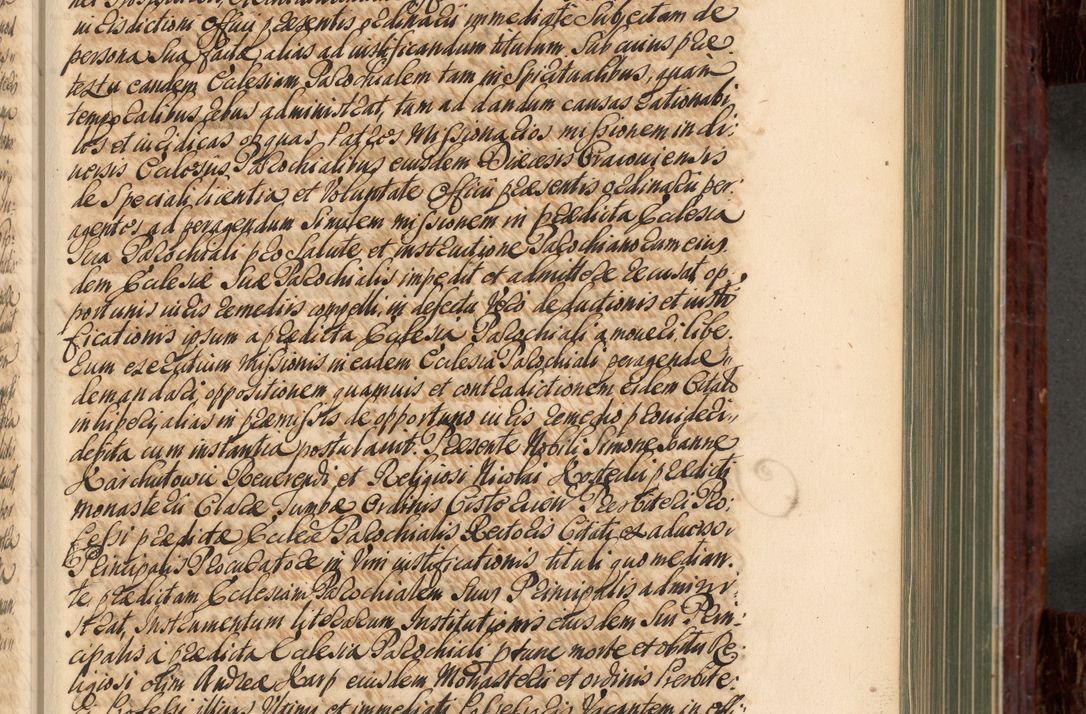 iurisdictioni Officij praesentis ordinarij immediatè Subiectam de
persona Sua facta alias ad iustificandum titulum, Sub cuius prae,
textu eandem Ecclesiam Parochialem tam in Spiritualibus, quàm
temporalibus rebus administrat, tum ad dandum causas rationabi,
les et iuridicas ob quas Patres Missionarios missionem in di,
uersis Ecclesiis Parochialibus eiusdem Diaecesis Cracouiensis
de Speciali licentia, et Voluntate Officij praesentis ordinarij per,
agentes ad peragendum Similem missionem in praedicta Ecclesia
Sua Parochiali pro Salute, et instructione Parochianorum eius,
dem Ecclesiae Suae Parochialis impedit et admittere recusat op,
portunis iuris remediis compelli, in defectu Vero deductionis et iusti,
ficationis ipsum a praedicta Ecclesia Parochiali amoueri, libe,
rum exercitium Missionis in eadem Ecclesia Parochiali peragendae
demandari, oppositionem quamuis et contradictionem eidem Citato
inhiberi, alias in praemissis de opportuno iuris remedio prouideri,
debita cum instantia postulauit. Praesente Nobili Simone Ioanne
Karchutowic Reuerendi et Religiosi Nicolai praedicti
monasterij Clarae Tumbae Ordinis Cisterciens Praesbiteri Pro,
fessi praedictae Ecclae Parochialis Rectoris Citati ex aduerso
Principalis Procuratore in Vim iustificationis tituli quo median,
te praedictam Ecclesiam Parochialem Suus Principalis admini,
strat, Instrumentum literarum Institutionis eiusdem Sui Prin,
cipalis à praedicta Ecclesia Parochiali ptunc morte et obitu Re,
ligiosi olim Andreae Karp eiusdem Monasterij et ordinis Praesbite,
ri Professi illius Vltimi et immediati Possessoris Vacantem in offi,